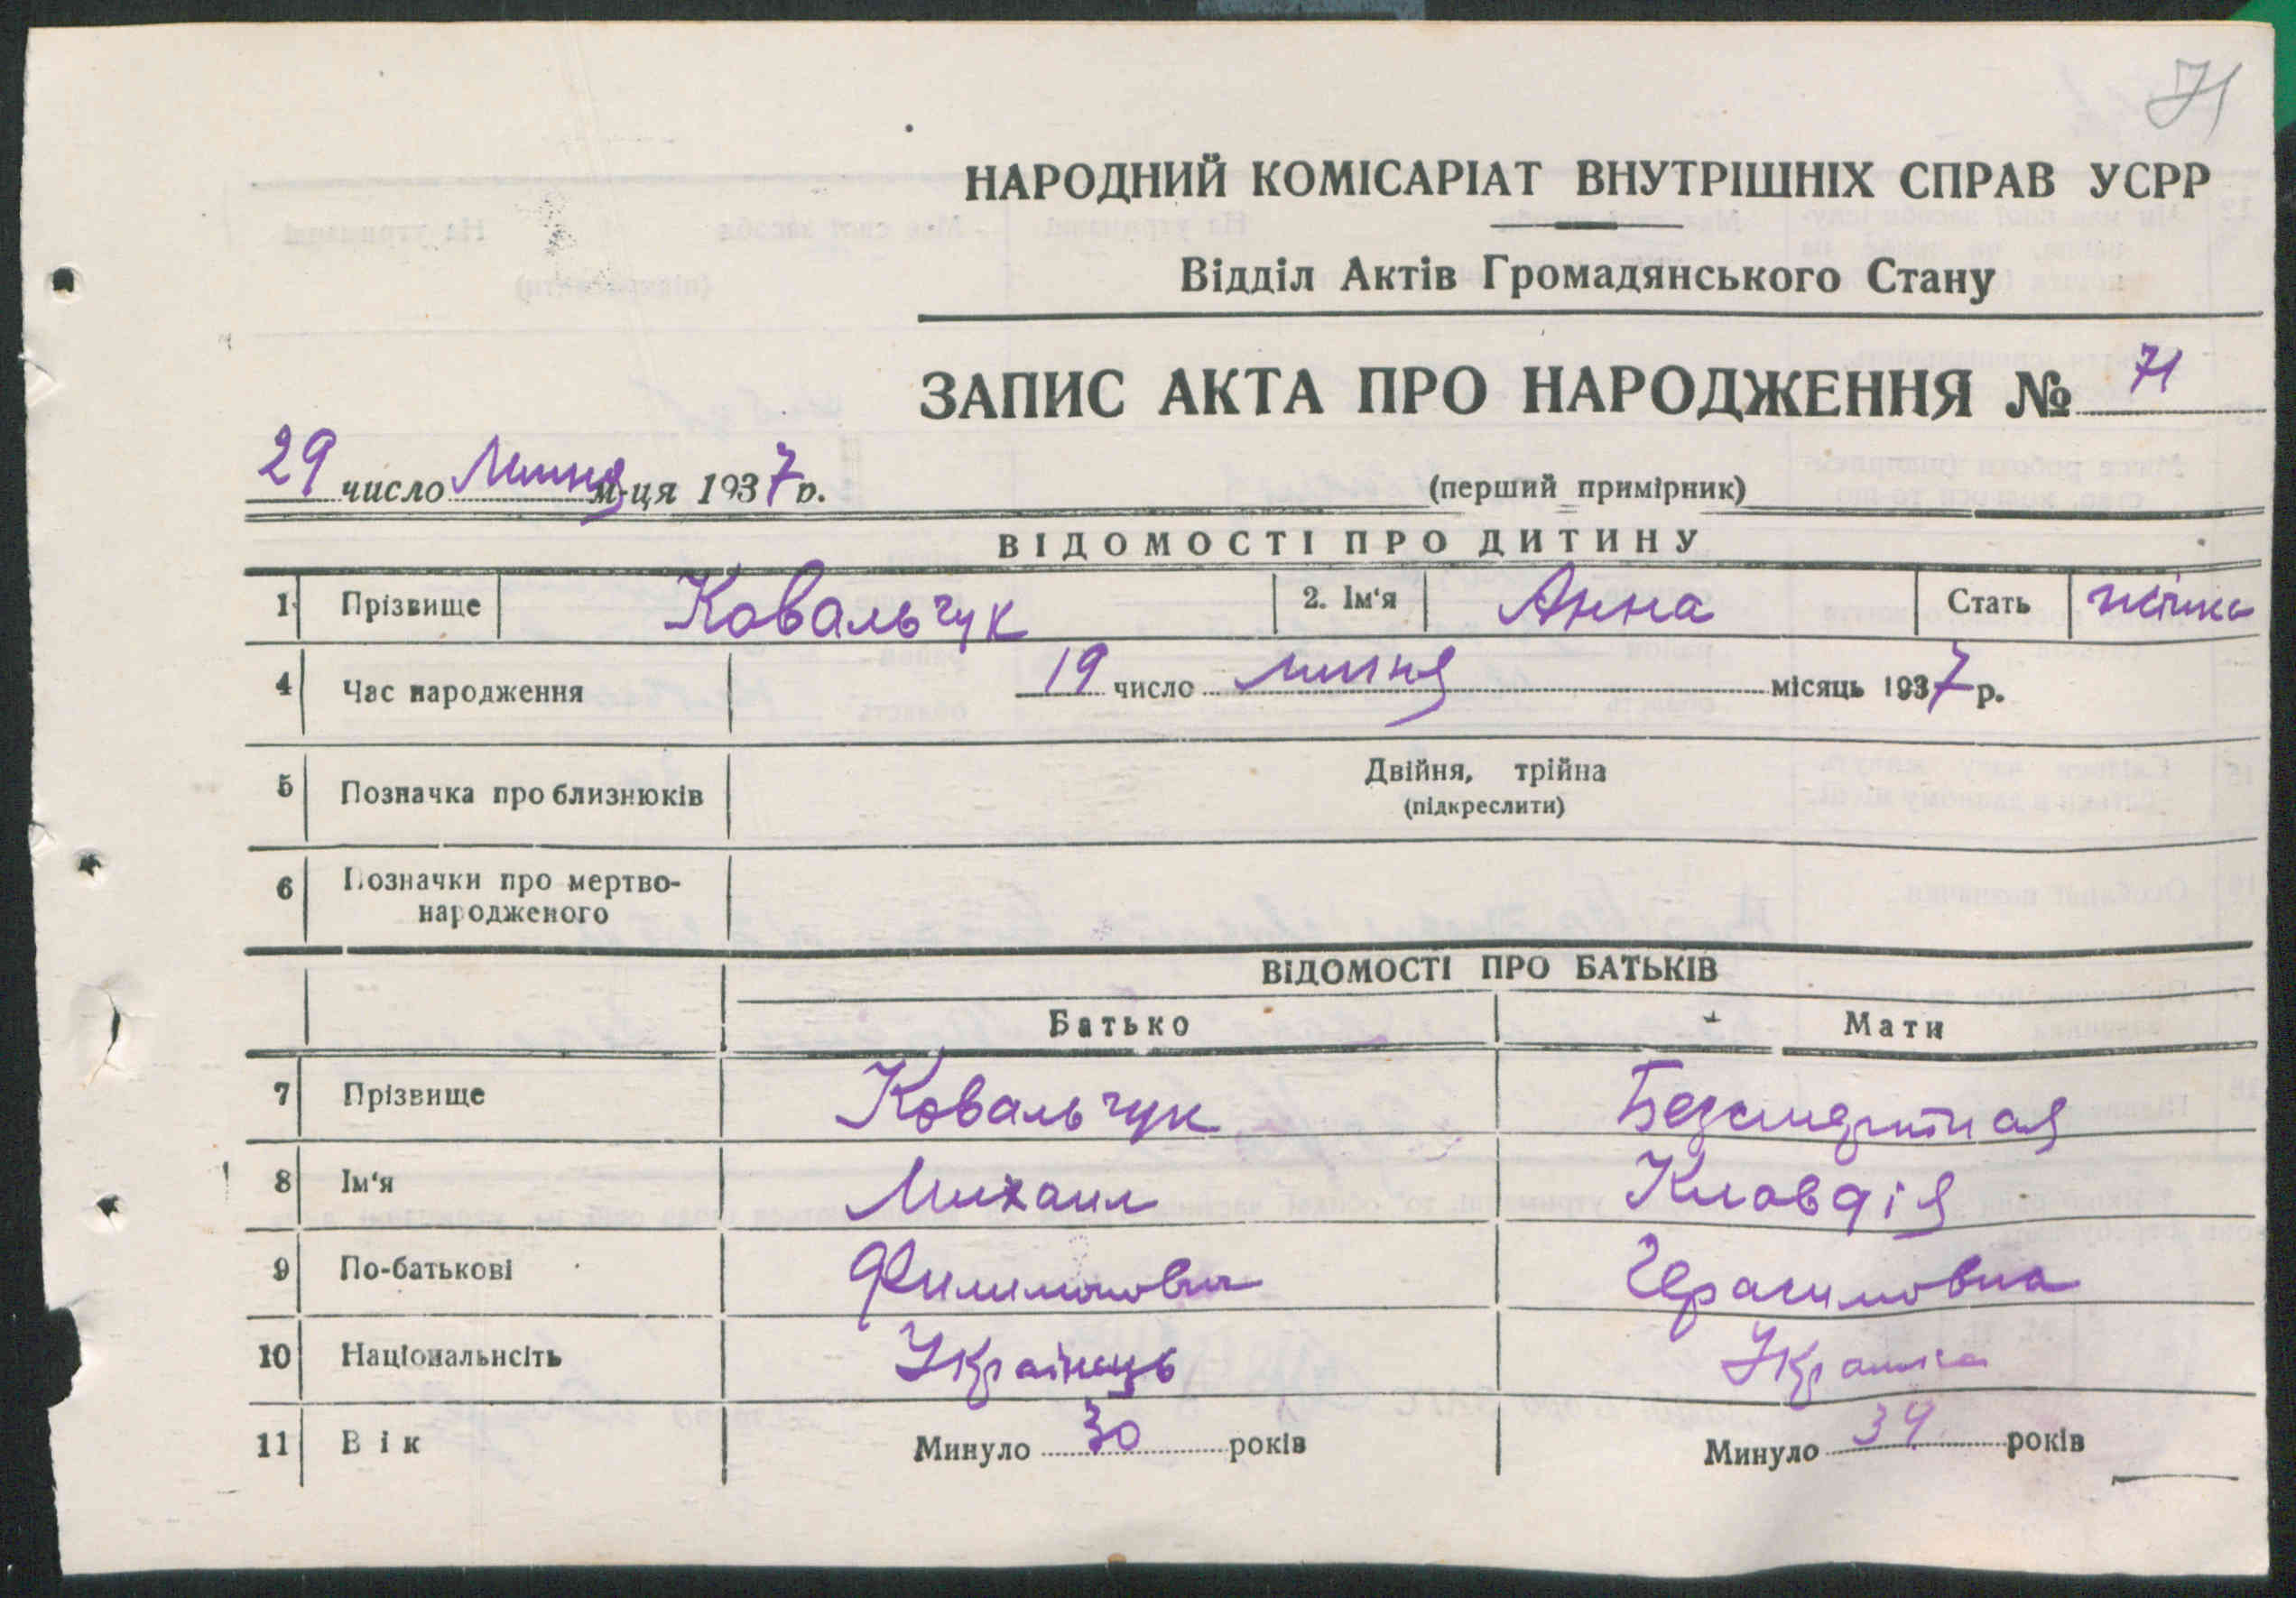 71
НАРОДНИЙ КОМІСАРІАТ ВНУТРІШНІХ СПРАВ УСРР
Відділ Актів Громадянського Стану
ЗАПИС АКТА ПРО НАРОДЖЕННЯ № 71
29 число Липня м-ця 1937 р.
(перший примірник)
ВІДОМОСТІ ПРО ДИТИНУ
1 Прізвище Ковальчук 2. Ім'я Анна Стать жінка
4 Час народження 19 число липня місяць 1937 р.
5 Позначка про близнюків Двійня, трійна
(підкреслити)
6 Позначки про мертво-
народженого
ВІДОМОСТІ ПРО БАТЬКІВ
Батько Мати
7 Прізвище Ковальчук Безсмертная
8 Ім'я Михаил Клавдія
9 По-батькові Филимонович Герасимовна
10 Національнсіть Українець Українка
11 Вік Минуло 30 років Минуло 34 років